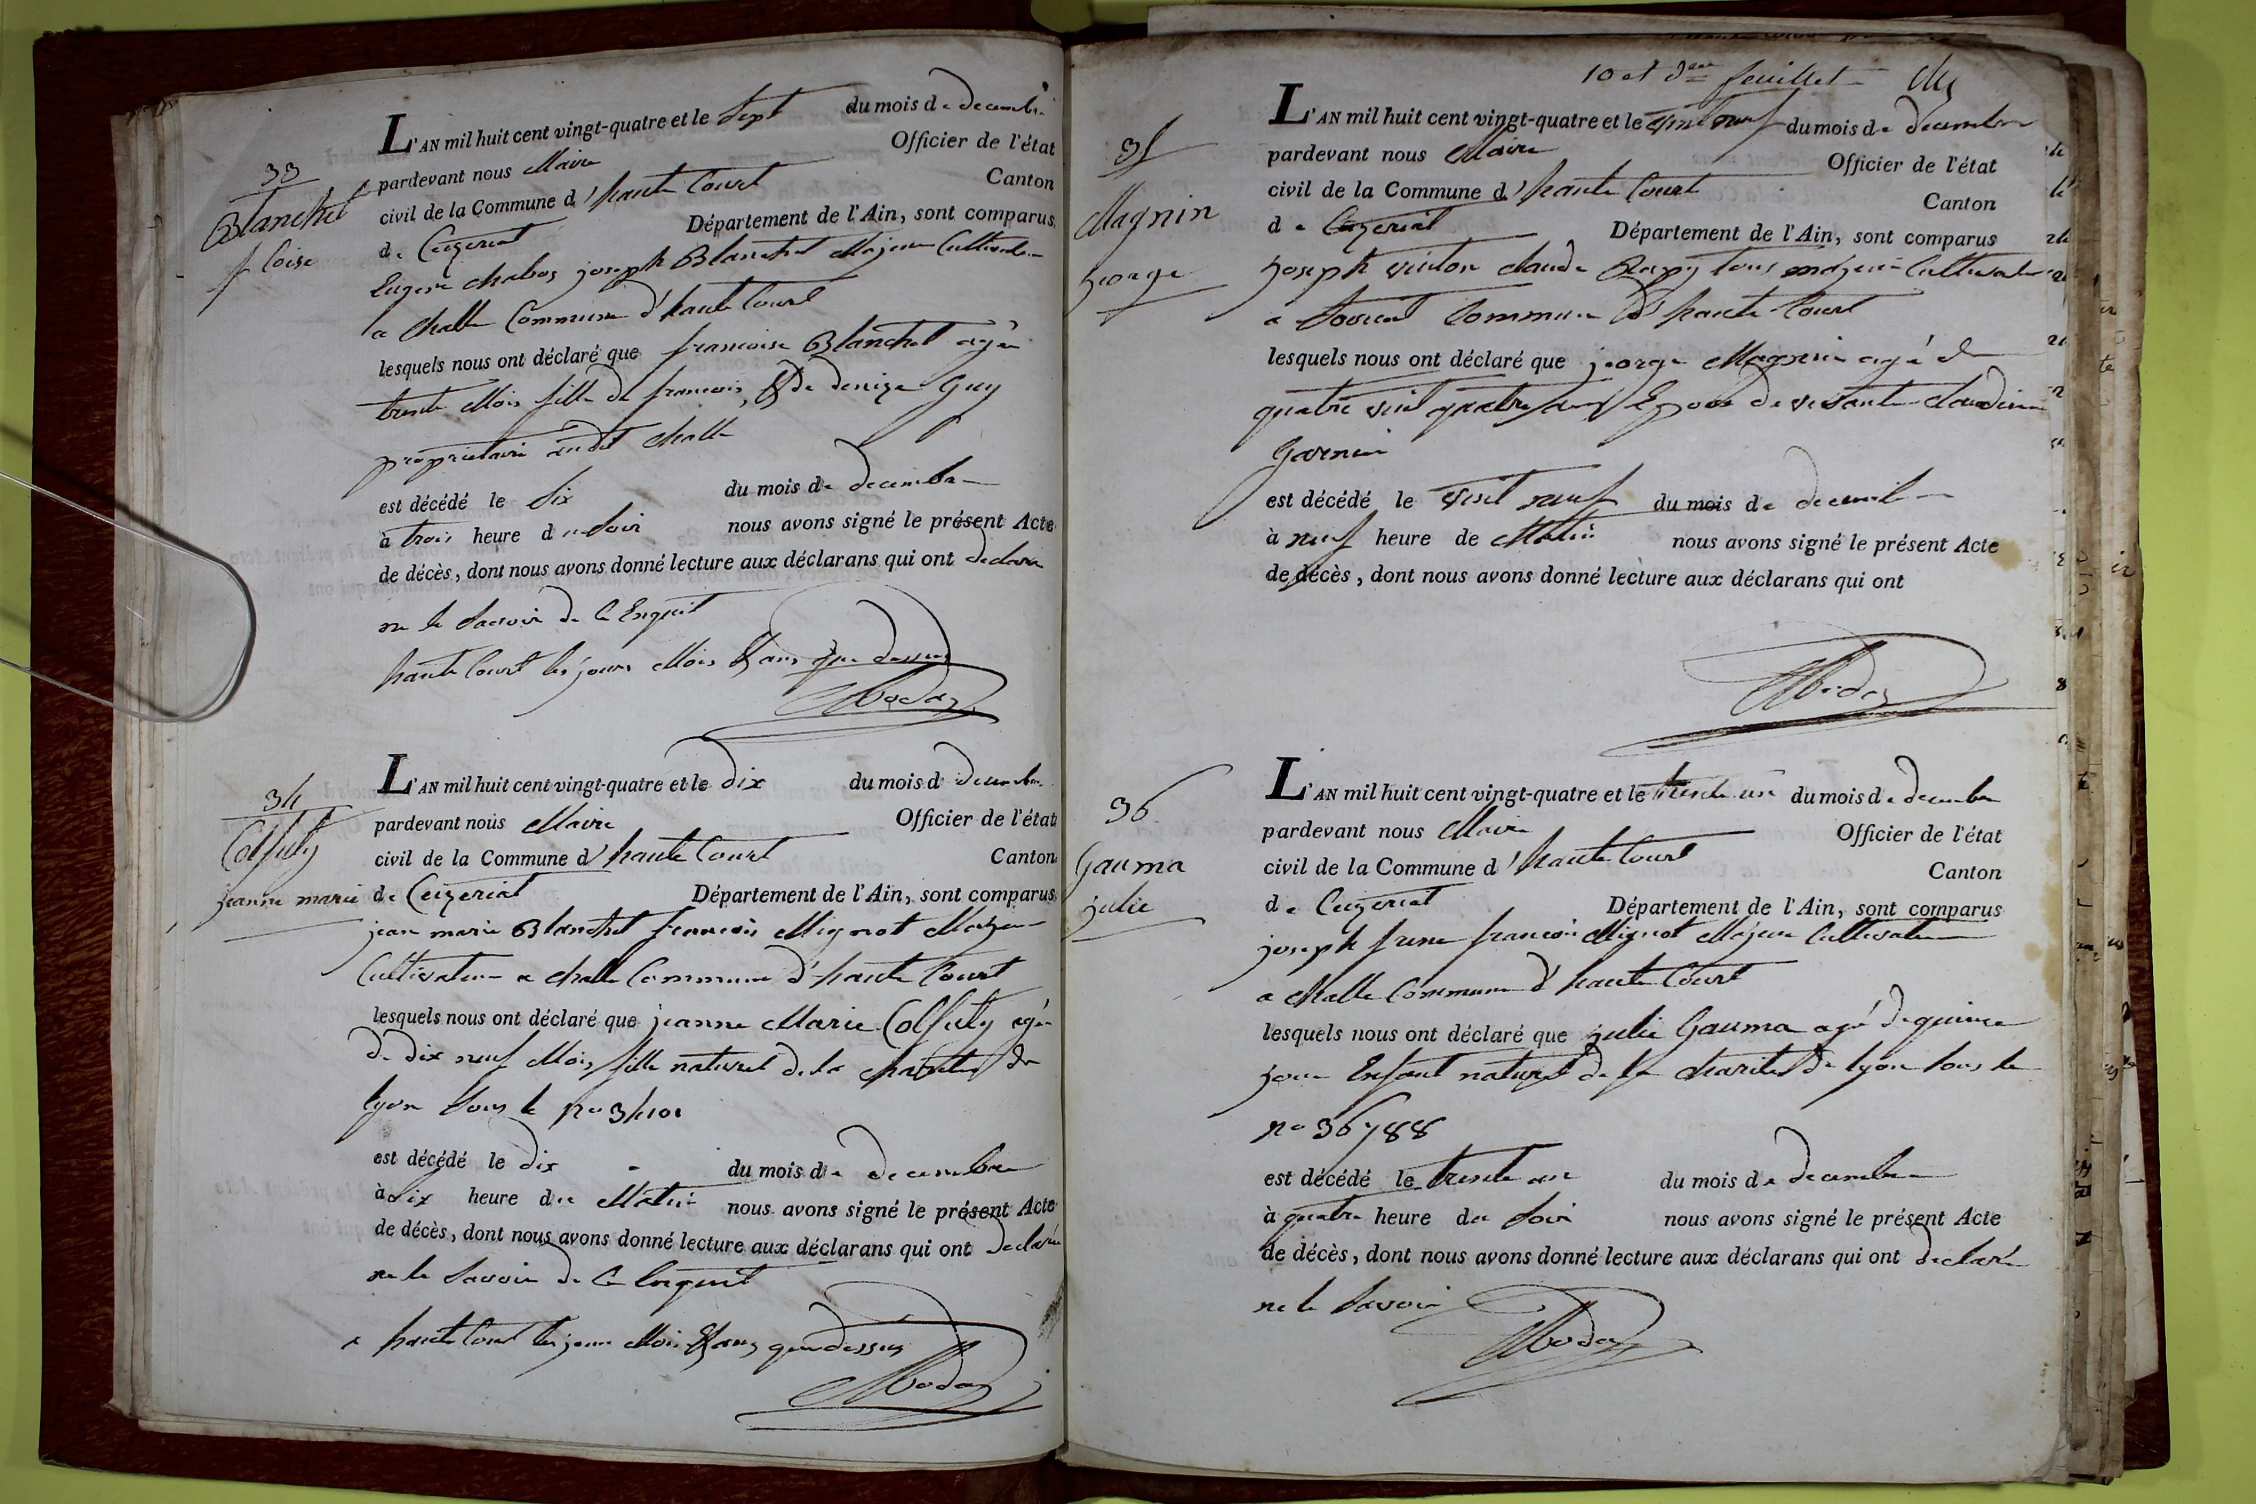 33
Blanchet
f.coise
L'AN mil huit cent vingt-quatre et le sept du mois de decembre
pardevant nous Maire Officier de l'état
civil de la Commune d'haute Court Canton
de Ceyzeriat Département de l'Ain, sont comparus
Eugene chabos joseph Blanchet Majeur Cultivateur
a challe Commune d'haute Court
lesquels nous ont déclaré que francoise Blanchet agée
trente Mois fille de francois & de denize Guy
proprietaire audit challe
est décédé le six du mois de decembre
à trois heure du soir nous avons signé le présent Acte
de décès, dont nous avons donné lecture aux déclarans qui ont declaré
ne le savoir de ce Enquit
haute Court les jours Mois & ans que dessus
Modas
34
Colfuty
jeanne marie
L'AN mil huit cent vingt-quatre et le dix du mois d decembre
pardevant nous Maire Officier de l'état
civil de la Commune d'haute Court Canton
de Ceyzeriat Département de l'Ain, sont comparus
jean marie Blanchet francois Mignot Majeur
Cultivateur a challe Commune d'haute Court
lesquels nous ont déclaré que jeanne Marie Colfuty agée
de dix neuf Mois fille naturel de la charité de
lyon sous le no 34101
est décédé le dix du mois de decembre
à dix heure du Matin nous avons signé le présent Acte
de décès, dont nous avons donné lecture aux déclarans qui ont declaré
ne le savoir de ce Enquit
a haute Court les jours Mois & ans que dessus
Modas
10 et feuillet
35
Magnin
george
L'AN mil huit cent vingt-quatre et le vint neuf du mois de decembre
pardevant nous Maire Officier de l'état
civil de la Commune d'haute Court Canton
de Ceyzeriat Département de l'Ain, sont comparus
joseph claude tous majeur Cultivateur
a Commune d'haute Court
lesquels nous ont déclaré que jeorge Magnin agé de
quatre vint quatre ans Epoux de vivante claudine
Garnier
est décédé le vint neuf du mois de decembre
à neuf heure de Matin nous avons signé le présent Acte
de décès, dont nous avons donné lecture aux déclarans qui ont
Modas
36
Gauma
julie
L'AN mil huit cent vingt-quatre et le trente un du mois de decembre
pardevant nous Maire Officier de l'état
civil de la Commune d'haute Court Canton
de Ceyzeriat Département de l'Ain, sont comparus
joseph frene francois Mignot Majeur Cultivateur
a challe Commune d'haute Court
lesquels nous ont déclaré que julie Gauma agé de quinze
jour Enfant naturel de la charité de lyon sous le
no 36788
est décédé le trente un du mois de decembre
à quatre heure du soir nous avons signé le présent Acte
de décès, dont nous avons donné lecture aux déclarans qui ont declaré
ne le savoir
Modas